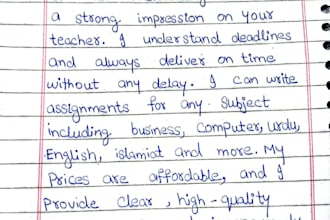 a strong impression on your
teacher. I understand deadlines
and always deliver on time
without any delay. I can write
assignments for any subject
including business, computer, urdu,
English, islamiat and more. My
Prices are affordable, and I
Provide clear, high-quality